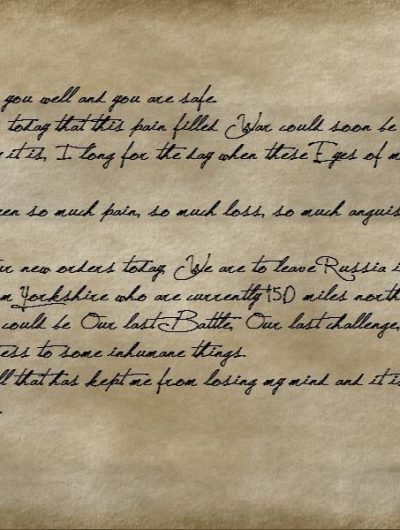 you well and you are safe.
today that this pain filled War could soon be
it is, I long for the day when these Eyes of m
en so much pain, so much loss, so much anguis
r new orders today, We are to leave Russia i
m Yorkshire who are currently 150 miles north
could be Our last Battle, Our last challenge,
ess to some inhumane things.
ll that has kept me from losing my mind and it is